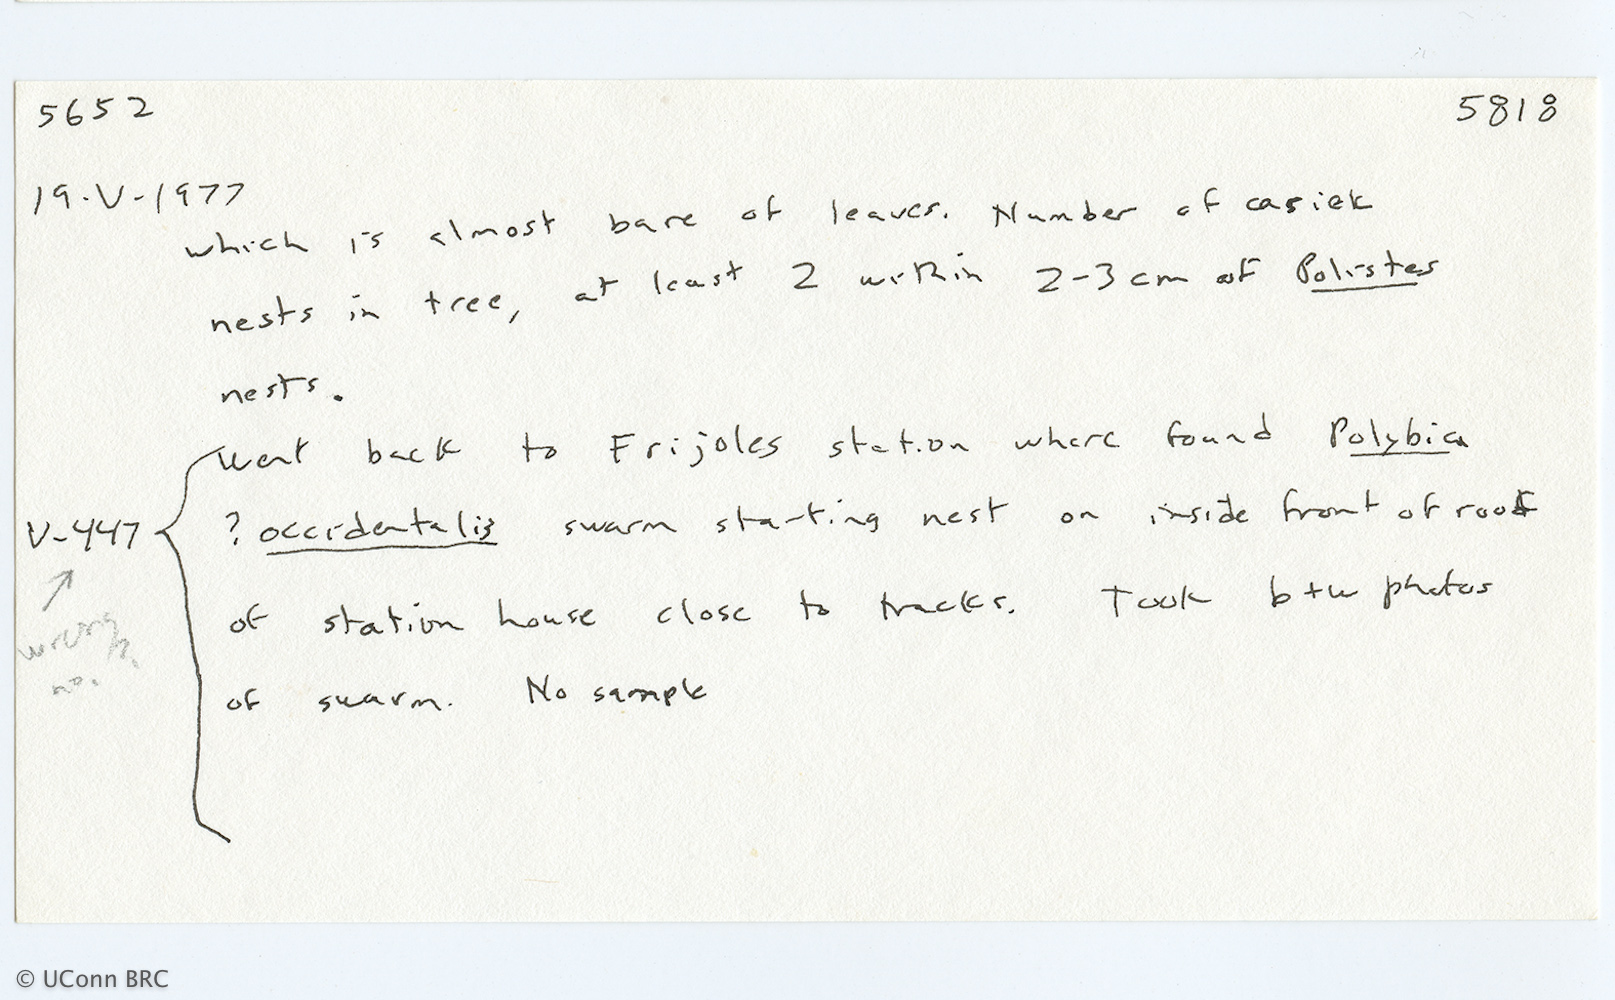 5652 5818
19.V-1977
which is almost bare of leaves. Number of casick
nests in tree, at least 2 within 2-3 cm of Polistes
nests.
Went back to Frijoles station where found Polybia
V-447 ? occidentalis swarm starting nest on inside front of roof
of station house close to tracks. Took b+w photos
wrong
no.
of swarm. No sample
© UConn BRC